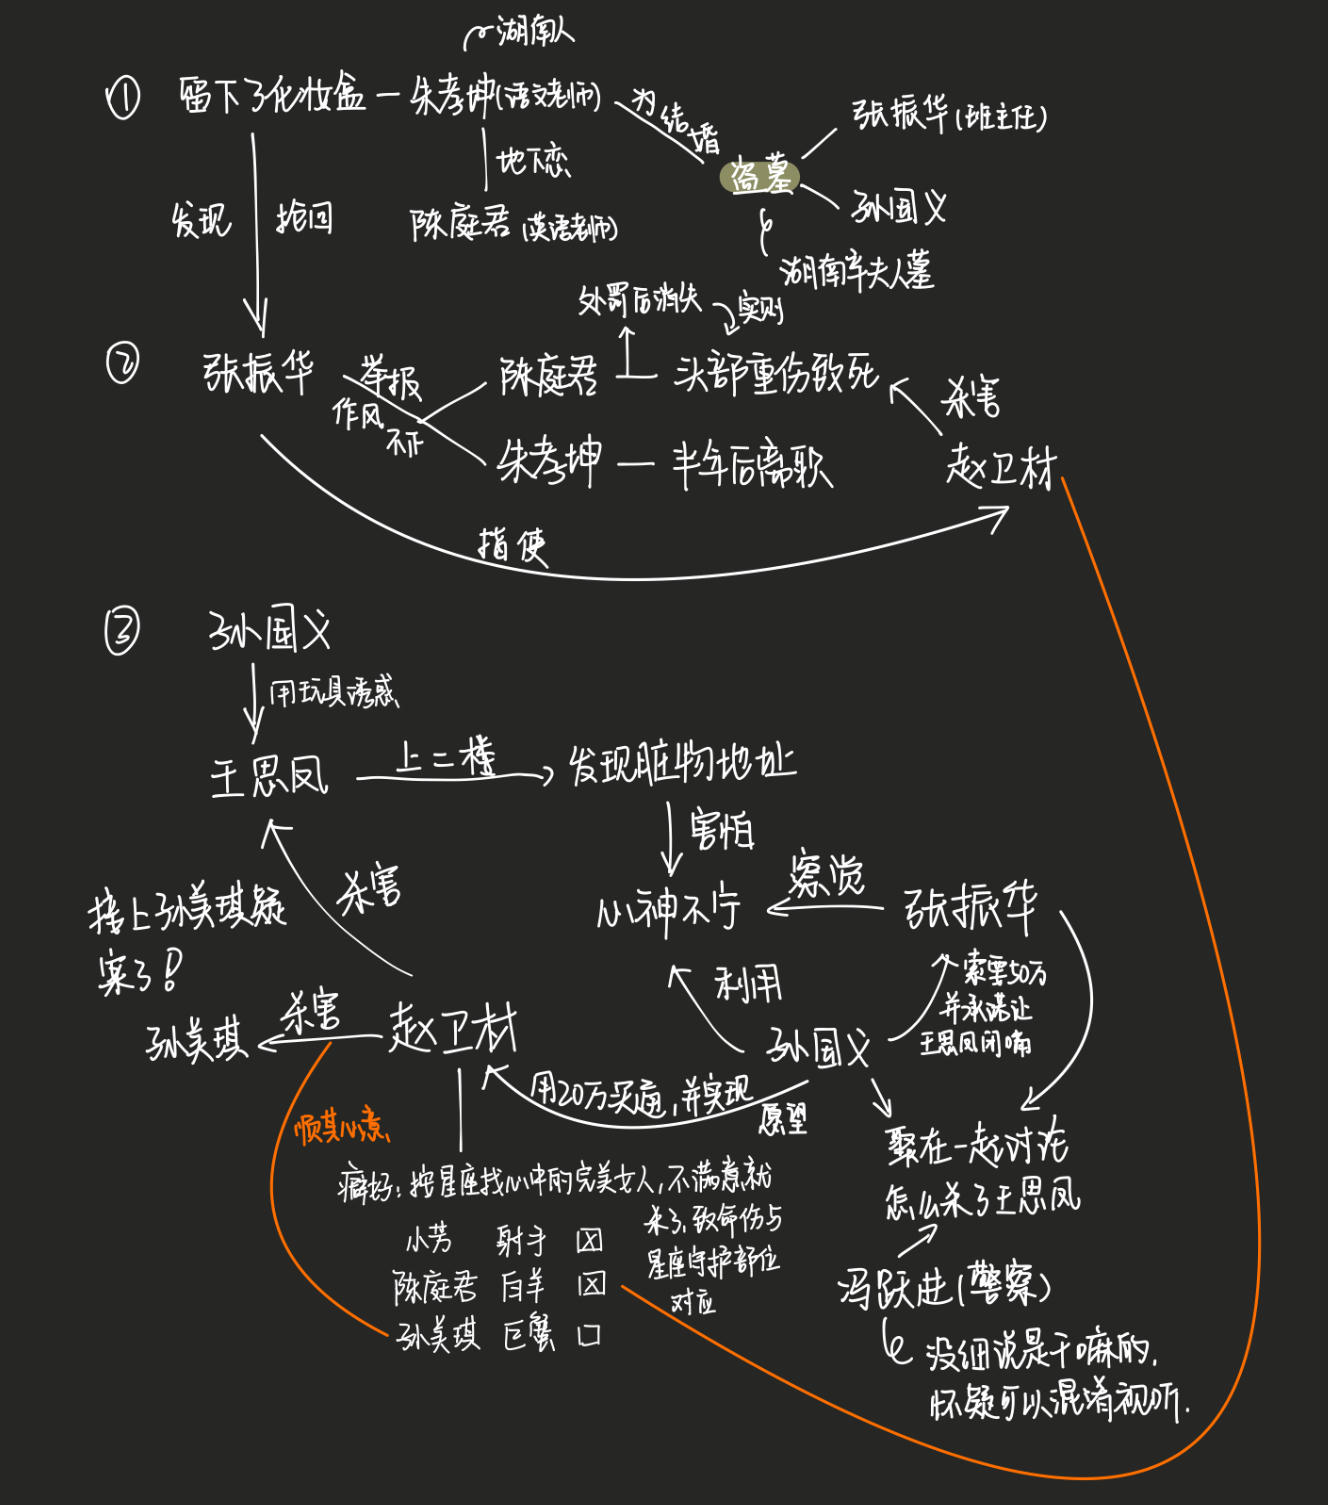 湖南人
① 留下了化妆盒 — 朱孝坤(语文老师)
为结婚
张振华(班主任)
地下恋
盗墓
发现 抢回
陈庭君(英语老师)
孙国义
湖南辛夫人墓
外罚后消失
实则
② 张振华
举报
作风
不正
陈庭君
头部重伤致死
杀害
朱孝坤 — 半年后离职
赵卫材
指使
③ 孙国义
用玩具诱惑
王思凤
上二楼
发现脏物地址
害怕
杀害
察觉
接上孙美琪疑
案了!
心神不宁
张振华
利用
索要50万
并承诺让
王思凤闭嘴
杀害
孙美琪
赵卫材
孙国义
用20万买通,并实现
愿望
顺其心意、
聚在一起讨论
怎么杀了王思凤
癖好:按星座找心中的完美女人,不满意就
杀了,致命伤与
星座守护部位
对应
小芳 射手 ☒
陈庭君 白羊 ☒
孙美琪 巨蟹 □
冯跃进(警察)
没细说是干嘛的,
怀疑可以混淆视听.